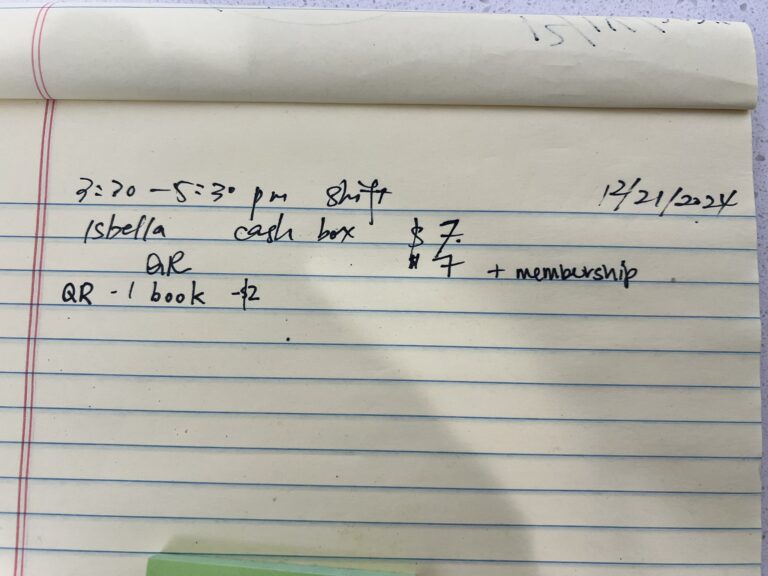 12/21/2024
3:30 - 5:30 pm shift
Isbella cash box $ 7.
QR $ 7 + membership
QR - 1 book - $2